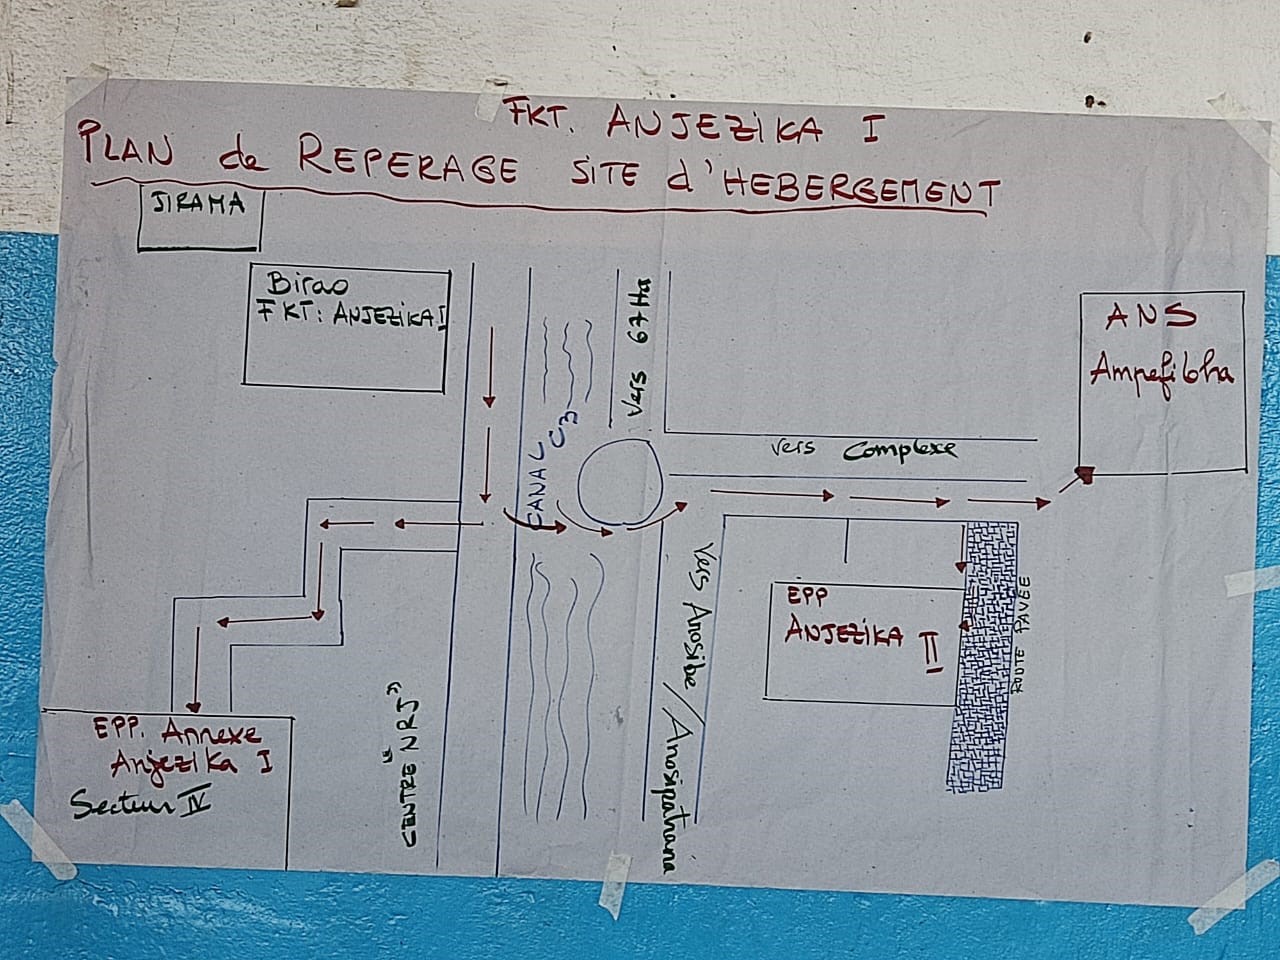 FKT. ANJEZIKA I
PLAN de REPERAGE SITE d'HEBERGEMENT
JIRAMA
Birao
FKT: ANJEZIKA I
Vers 67 Ha
CANAL C3
ANS
Ampefiloha
Vers Complexe
Vers Anosibe/Anosipatrana
EPP
ANJEZIKA II
ROUTE PAVEE
CENTRE "NRJ"
EPP. Annexe
Anjezika I
Secteur IV